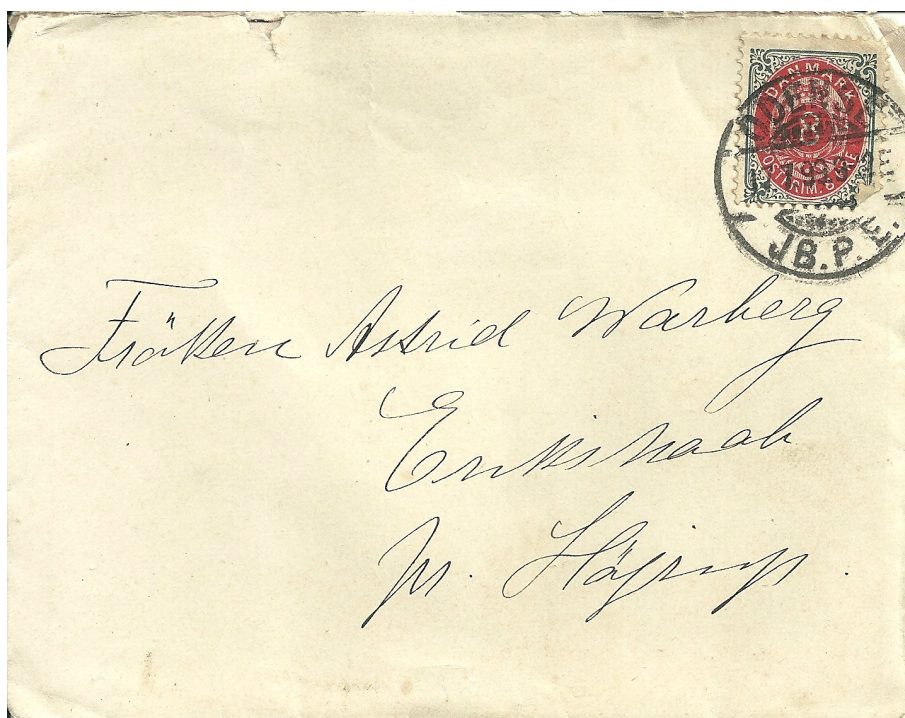 DANMARK
8
POSTFRIM. 8 ØRE
J.B.P.E.
Fröken Astrid Warberg
Erikshaab
pr. Höjrup.